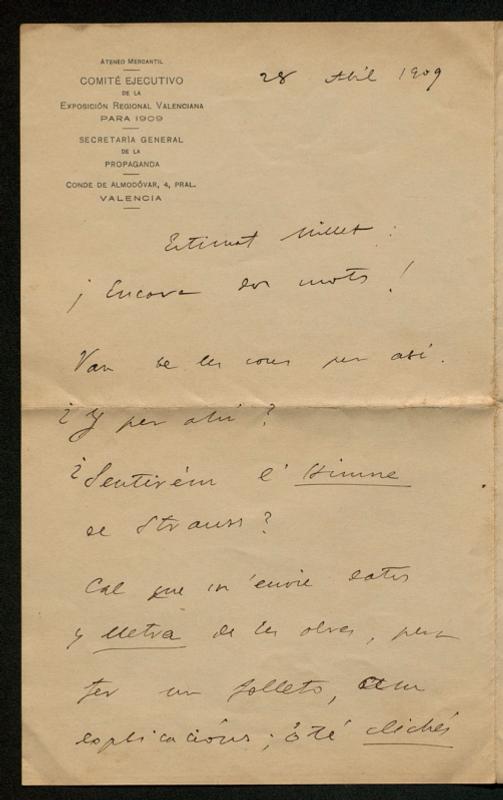 ATENEO MERCANTIL
COMITÉ EJECUTIVO
DE LA
EXPOSICIÓN REGIONAL VALENCIANA
PARA 1909
SECRETARÍA GENERAL
DE LA
PROPAGANDA
CONDE DE ALMODÓVAR, 4, PRAL.
VALENCIA
28 Abil 1909
Estimat Millet:
¡Encara dos mots!
Van be les coses per así.
¿Y per ahí?
¿Sentirém l'Himne
de Strauss?
Cal que m'envie datos
y lletra de les obres, pera
fer un folleto, am
explicacións; ó té clichés